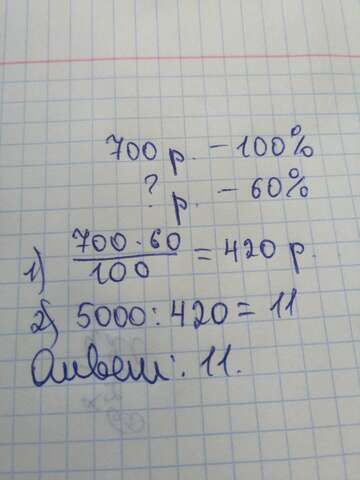 700 р. – 100%
? р. – 60%
1) 700 · 60 / 100 = 420 р.
2) 5000 : 420 = 11
Ответ: 11.